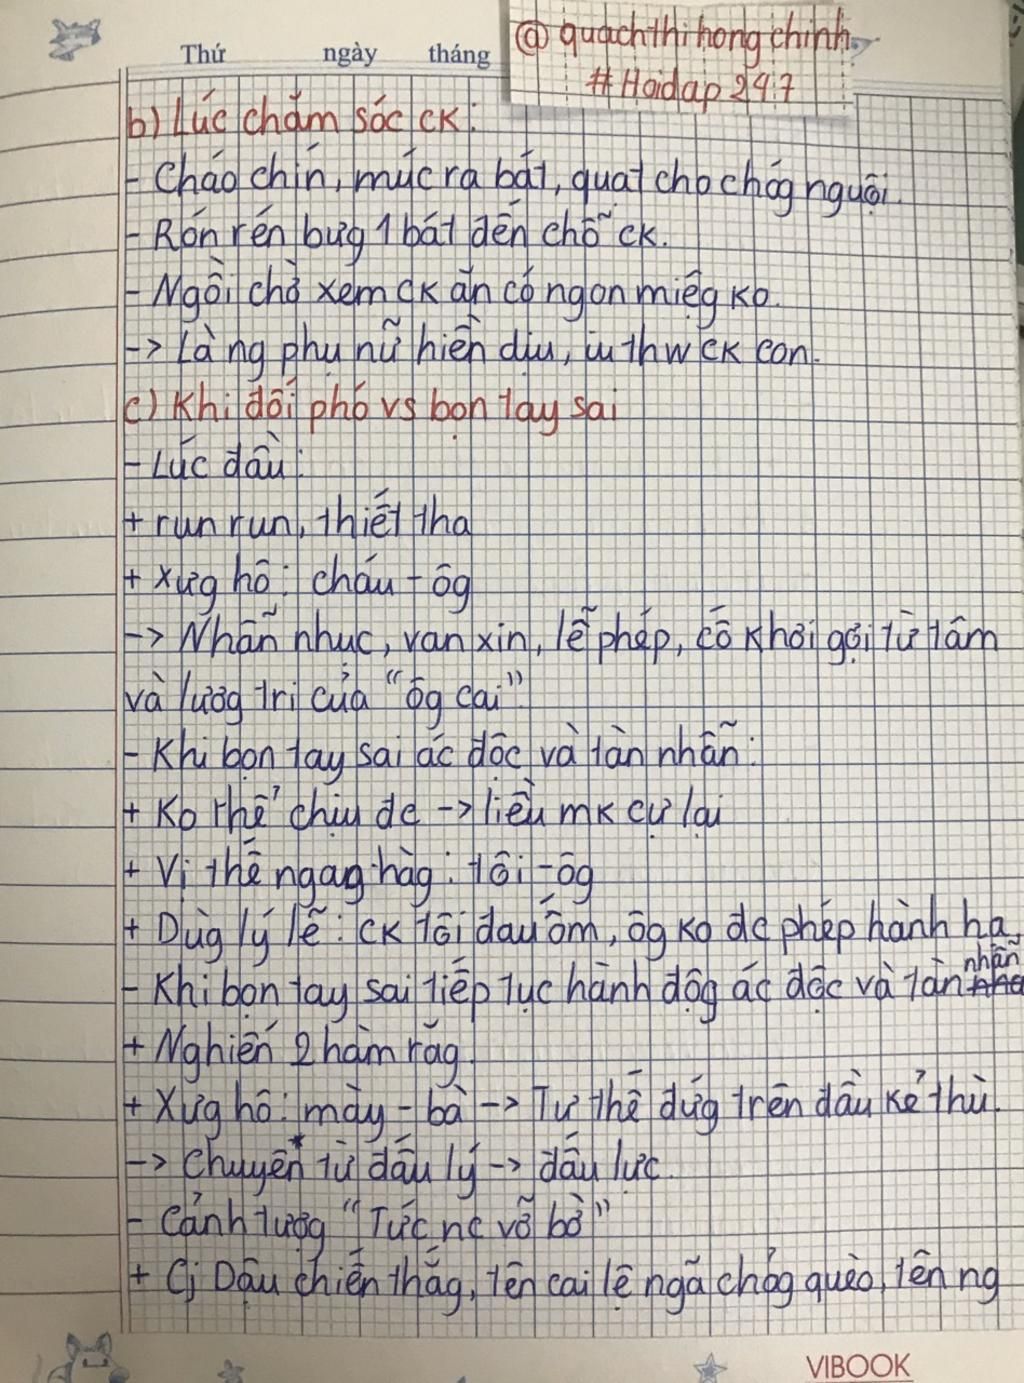 Thứ ngày tháng
@ quachthihongchinh.
# Hoidap247
b) Lúc chăm sóc ck:
- Cháo chín, múc ra bát, quạt cho chóg nguội.
- Rón rén bưg 1 bát đến chỗ ck.
- Ngồi chờ xem ck ăn có ngon miệg ko.
-> Là ng phụ nữ hiền dịu, iu thw ck con.
c) Khi đối phó vs bọn tay sai
- Lúc đầu:
+ run run, thiết tha
+ Xưg hô: cháu - ôg
-> Nhẫn nhục, van xin, lễ phép, cố khơi gợi từ tâm
và lươg tri của "ôg cai"
- Khi bọn tay sai ác độc và tàn nhẫn:
+ Ko thể chịu đc -> liều mk cự lại
+ Vị thế ngag hàg: tôi - ôg
+ Dùg lý lẽ: ck tôi đau ốm, ôg ko đc phép hành hạ.
- Khi bọn tay sai tiếp tục hành độg ác độc và tàn nhẫn
+ Nghiến 2 hàm răg.
+ Xưg hô: mày - bà -> Tư thế đứg trên đầu kẻ thù.
-> Chuyển từ đấu lý -> đấu lực.
- Cảnh tượg "Tức nc vỡ bờ"
+ Cj Dậu chiến thắg, tên cai lệ ngã chỏg quèo, tên ng
VIBOOK